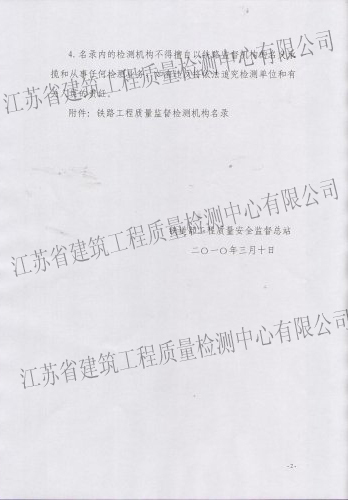 4.名录内的检测机构不得擅自以铁路监督机构的名义承
揽和从事任何检测
依法追究检测单位和有
附件：铁路工程质量监督检测机构名录
工程质量安全监督总站
二〇一〇年三月十日
江苏省建筑工程质量检测中心有限公司
江苏省建筑工程质量检测中心有限公司
江苏省建筑工程质量检测中心有限公司
-2-